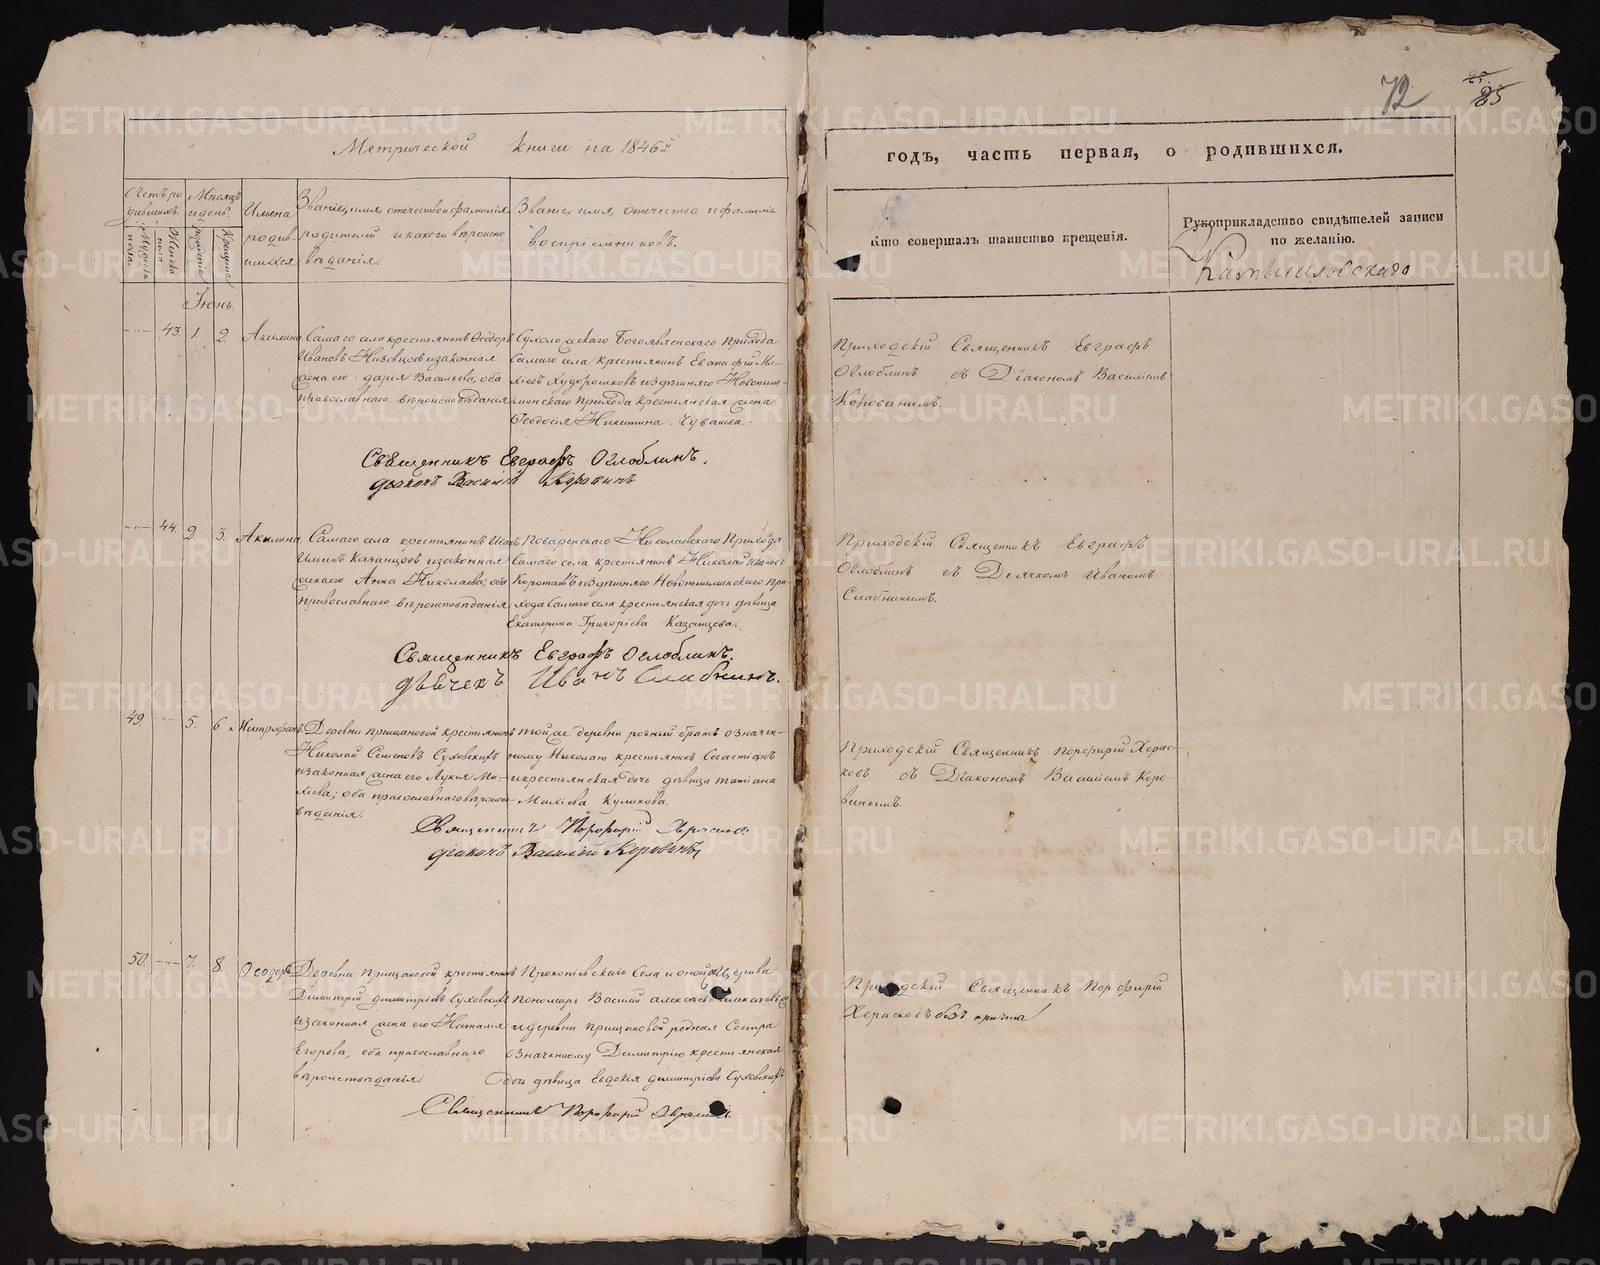 72
25
85
Метрической книги на 1846й
годъ, часть первая, о родившихся.
Счетъ родившихъ.
Мѣсяцъ и день.
Имена родившихся
Званіе, имя, отечество и фамилія
родителей и какого вѣроисповѣданія.
Званіе, имя, отечество и фамилія
воспріемниковъ.
Кто совершалъ таинство крещенія.
Рукоприкладство свидѣтелей записи
по желанію.
Мужеска пола
Женска пола
рожденіе
Крещеніе
Камышловскаго
Іюнь.
43. 1. 2. Акилина
Самаго села крестьянинъ Ѳеодоръ
Ивановъ и законная
жена его Дарія Васильева, оба
православнаго вѣроисповѣданія
Сухоложскаго Богоявленскаго Прихода
самаго села крестьянинъ Евстафій
и здѣшняго
Прихода крестьянская жена
Ѳеодосія Никитина Чуваева.
Приходскій Священникъ Евграфъ
Оглоблинъ съ Діакономъ Василіемъ
Коровинымъ.
Священникъ Евграфъ Оглоблинъ.
діаконъ Василій Коровинъ
44. 2. 3. Акилина
Самаго села крестьянинъ Иванъ
Ильинъ Казанцовъ и законная
Анна Николаева; оба
православнаго вѣроисповѣданія
Поваренскаго Николаевскаго Прихода
самаго села крестьянинъ Николай Ивановъ
Коротаевъ и здѣшняго Новопышминскаго При-
хода самаго села крестьянская дочь дѣвица
Екатерина Григоріева Казанцова.
Приходскій Священникъ Евграфъ
Оглоблинъ съ Дьячкомъ Иваномъ
Слабнинымъ.
Священникъ Евграфъ Оглоблинъ.
дьячекъ Иванъ Слабнинъ.
49 5. 6 Митрофанъ
Деревни крестьянинъ
Николай Семеновъ Суховскихъ
и законная жена его Лукія Ми-
хіева; оба православнаго вѣроиспо-
вѣданія.
той же деревни родный братъ означен-
ному Николаю крестьянинъ Севастіанъ
и крестьянская дочь дѣвица Татіана
Михіева Куликова.
Приходскій Священникъ Порфирій Херас-
ковъ съ Діакономъ Василіемъ Коро-
винымъ.
Священникъ Порфирій Херасковъ
діаконъ Василій Коровинъ
50. 7. 8 Ѳеодоръ
Деревни крестьянинъ
Димитрій Димитріевъ Суховскихъ
и законная жена его Наталія
Егорова, оба православнаго
вѣроисповѣданія
Прокопіевскаго Села и оной церкви
Пономарь Василій Алексѣевъ
и деревни родная Сестра
означенному Димитрію крестьянская
дочь дѣвица Евдокія Димитріева Суховскихъ
Приходскій Священникъ Порфирій
Херасковъ безъ причта
Священникъ Порфирій Херасковъ.
METRIKI.GASO-URAL.RU